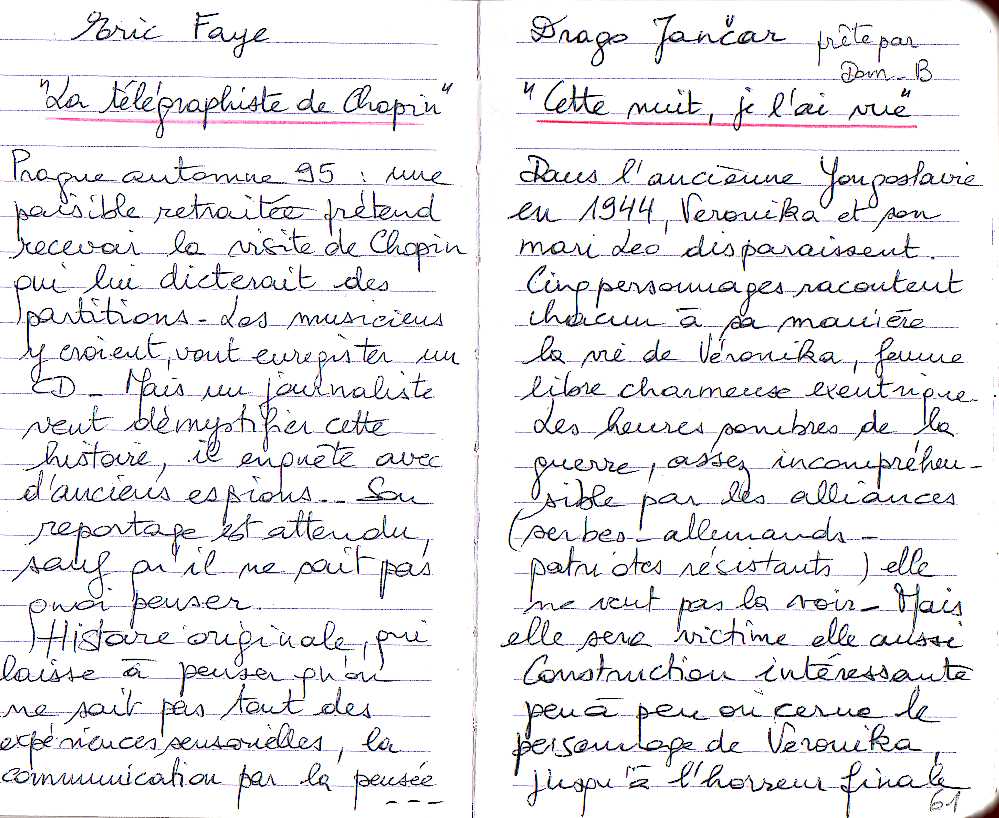 Eric Faye
"La télégraphiste de Chopin"
Prague automne 95 : une
paisible retraitée prétend
recevoir la visite de Chopin
qui lui dicterait des
partitions - Les musiciens
y croient, vont enregister un
CD - Mais un journaliste
veut démystifier cette
histoire, il enquête avec
d'anciens espions... Son
reportage est attendu,
sauf qu'il ne sait pas
quoi penser.
Histoire originale, qui
laisse à penser qu'on
ne sait pas tout des
expériences sensorielles, la
communication par la pensée
---
Drago Jančar prêté par
Dom - B
"Cette nuit, je l'ai vue"
Dans l'ancienne Yougoslavie
en 1944, Veronika et son
mari Leo disparaissent.
Cinq personnages racontent
chacun à sa manière
la vie de Véronika, femme
libre charmeuse exentrique.
Les heures sombres de la
guerre, assez incompréhen-
sible par les alliances
(serbes - allemands -
patriotes résistants) elle
ne veut pas la voir - Mais
elle sera victime elle aussi
Construction intéressante
peu à peu on cerne le
personnage de Veronika,
jusqu'à l'horreur finale
61